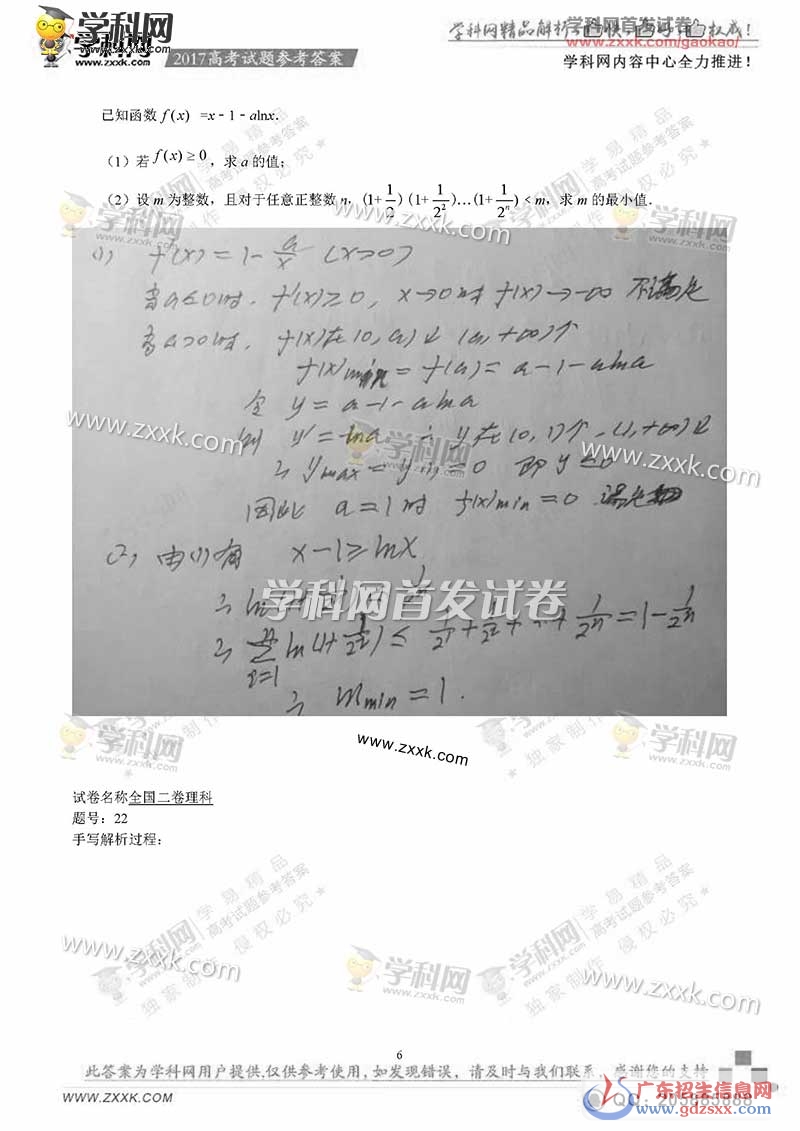 学科网
www.zxxk.com
2017高考试题参考答案
学科网首发试卷
www.zxxk.com/gaokao/
学科网内容中心全力推进!
已知函数 f(x) =x﹣1﹣alnx.
(1)若 f(x) ≥ 0 ,求 a 的值;
(2)设 m 为整数,且对于任意正整数 n,(1+1/2)(1+1/2²)…(1+1/2ⁿ)﹤m,求 m 的最小值.
(1) f'(x) = 1 - a/x (x>0)
当a≤0时, f'(x)≥0, x→0时 f(x)→-∞ 不满足
当a>0时, f(x)在(0, a)↓ (a, +∞)↑
f(x)min = f(a) = a-1-alna
令 y = a-1-alna
则 y' = -lna ∴ y在(0, 1)↑, (1, +∞)↓
∴ ymax = y(1) = 0 即 y≤0
因此 a=1时 f(x)min = 0 满足
(2) 由(1)有 x-1≥lnx
学科网首发试卷
∴ Σ ln(1+1/2ⁱ) ≤ 1/2¹ + 1/2² + … + 1/2ⁿ = 1 - 1/2ⁿ
i=1
∴ mmin = 1.
www.zxxk.com
试卷名称全国二卷理科
题号:22
手写解析过程:
学易精品
高考试题参考答案
侵权必究
学科网
独家制作
www.zxxk.com
6
此答案为学科网用户提供,仅供参考使用,如发现错误,请及时与我们联系,感谢您的支持
WWW.ZXXK.COM
广东招生信息网
www.gdzsxx.com